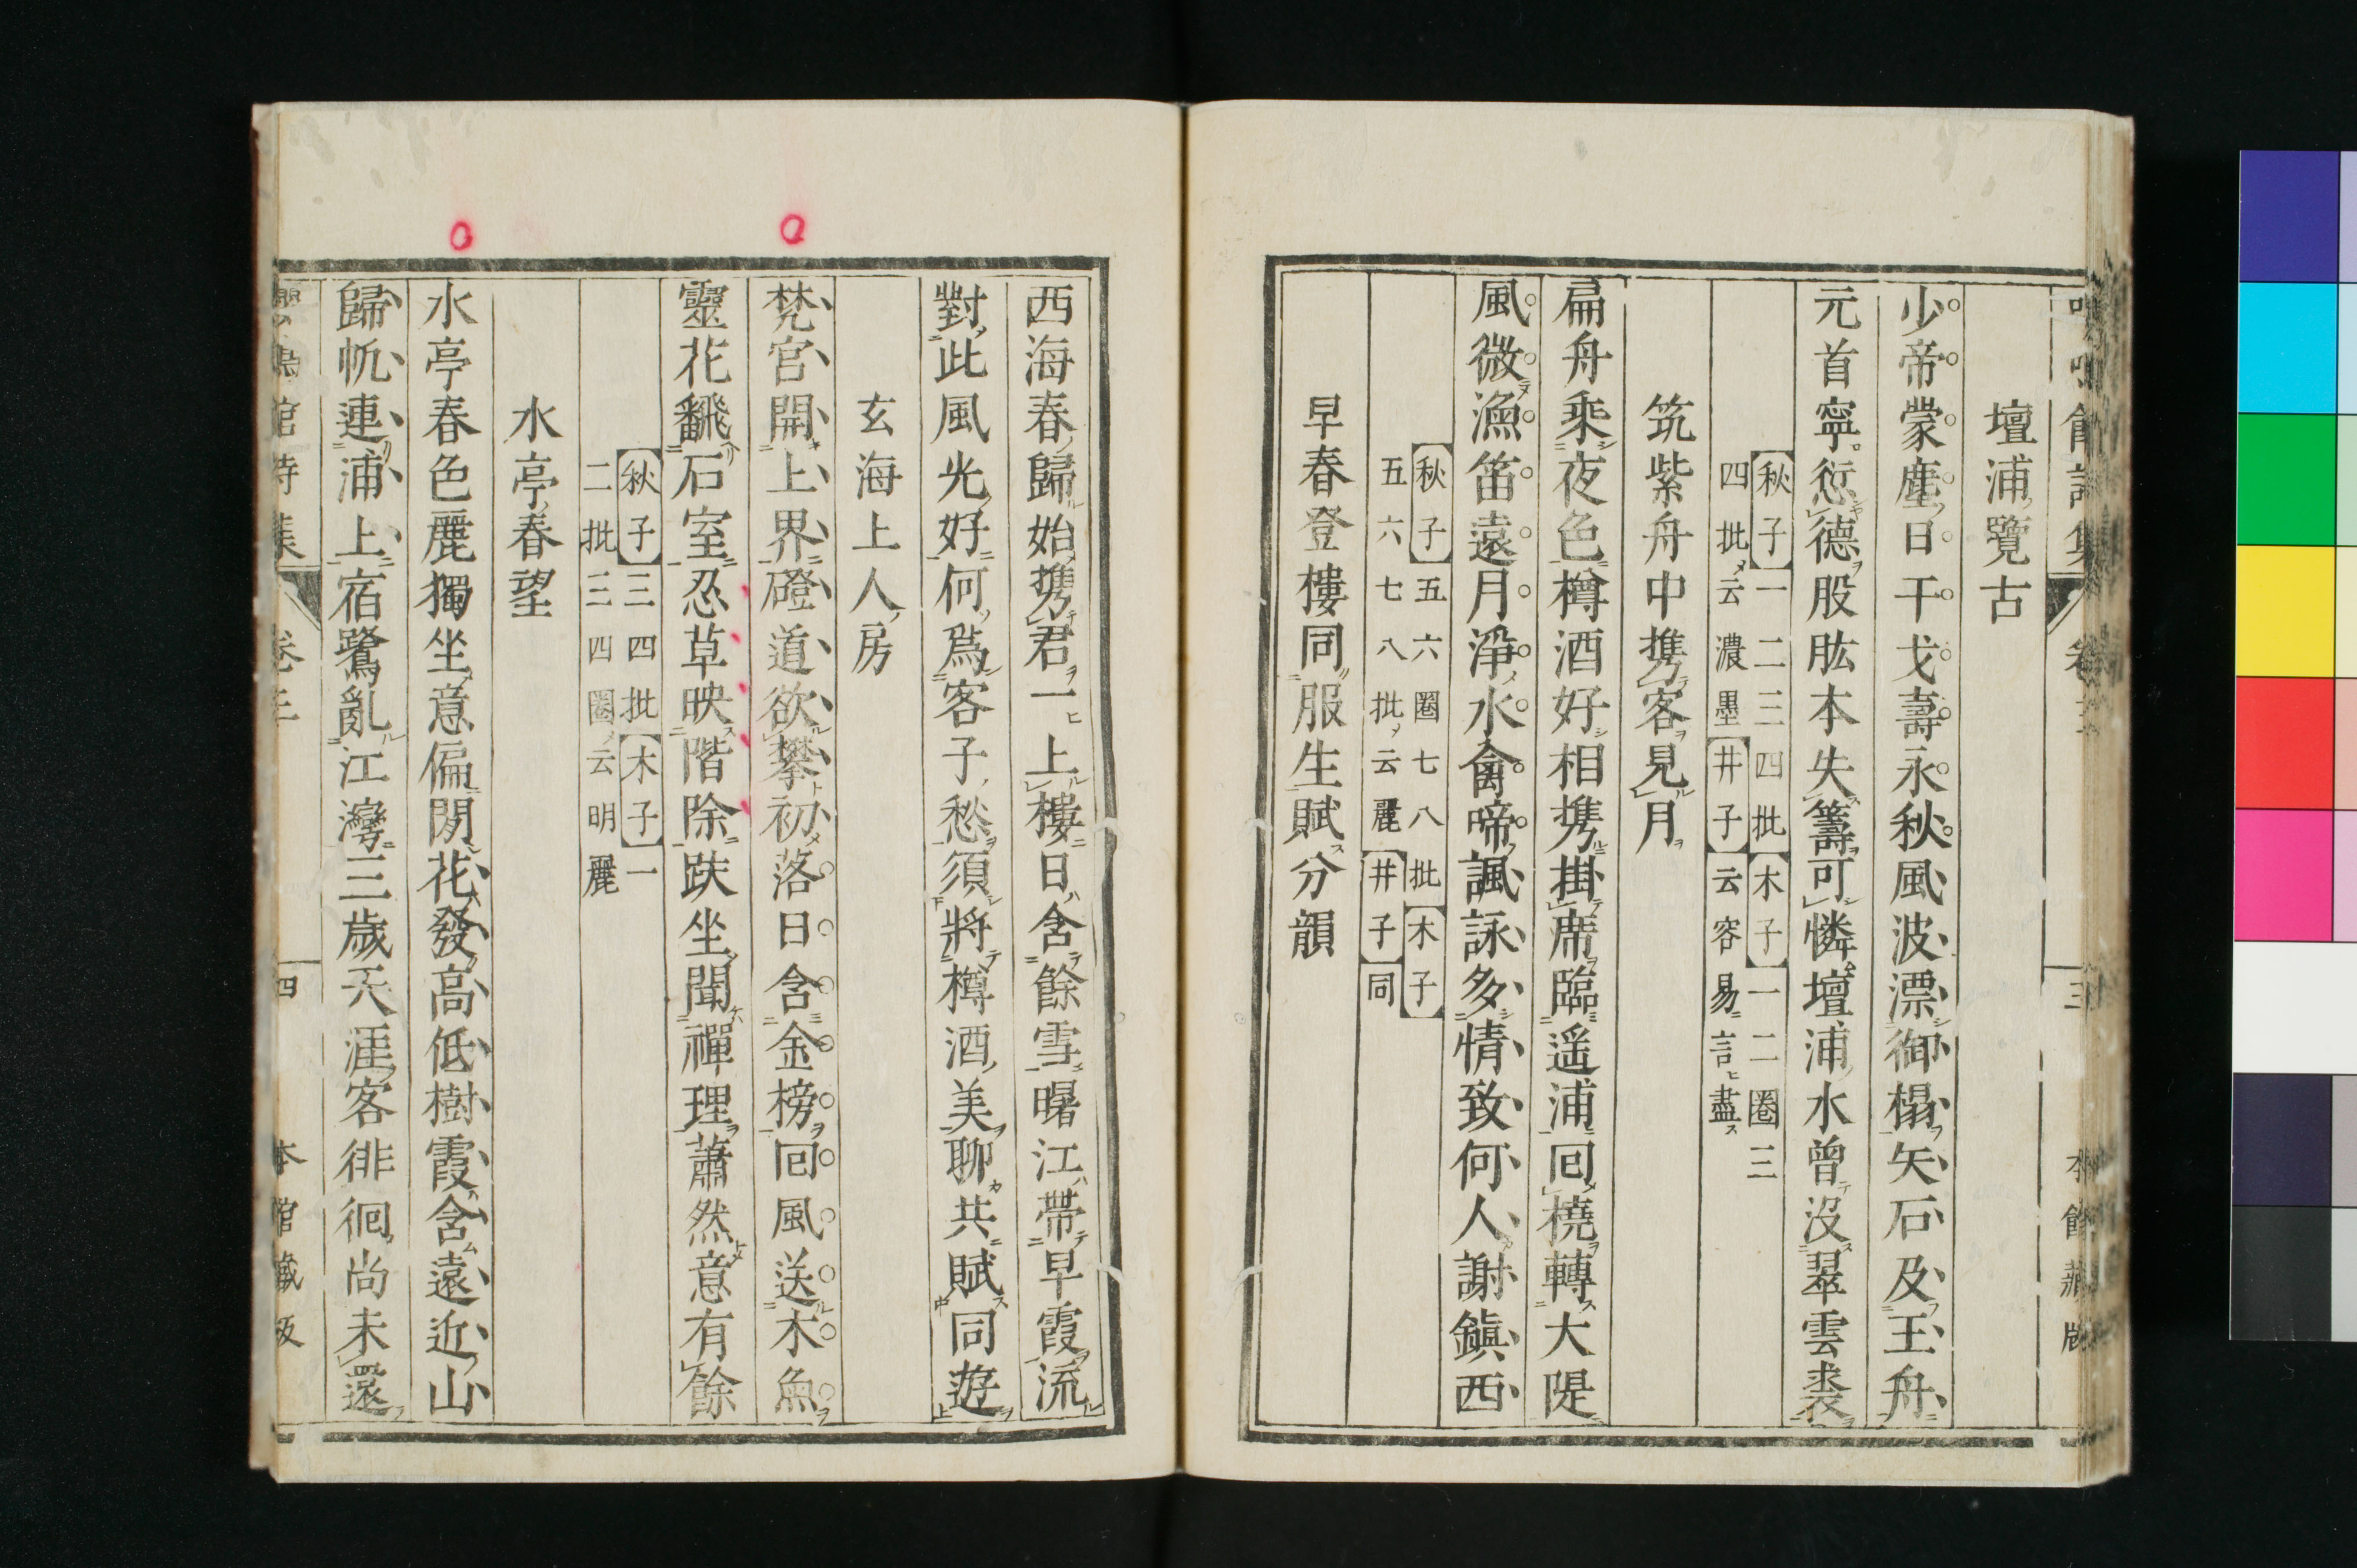 壇浦覽古
少帝蒙塵日干戈壽永秋風波漂御榻矢石及王舟
元首寧愆德股肱本失籌可憐壇浦水曾沒翠雲裘
【秋子】一二三四批【木子】一二圈三
四批云濃墨【井子】云容易言盡
筑紫舟中携客見月
扁舟乘夜色樽酒好相携掛席臨遥浦回橈轉大隄
風微漁笛遠月淨水禽啼諷詠多情致何人謝鎭西
【秋子】五六圈七八批【木子】
五六七八批云麗【井子】同
早春登樓同服生賦分韻
西海春歸始携君一上樓日含餘雪曙江帶早霞流
對此風光好何爲客子愁須將樽酒美聊共賦同遊
玄海上人房
梵宮開上界磴道欲攀初落日含金榜回風送木魚
靈花飜石室忍草映階除趺坐聞禪理蕭然意有餘
【秋子】三四批【木子】一
二批三四圈云明麗
水亭春望
水亭春色麗獨坐意偏閒花發高低樹霞含遠近山
歸帆連浦上宿鷺亂江灣三歲天涯客徘徊尚未還